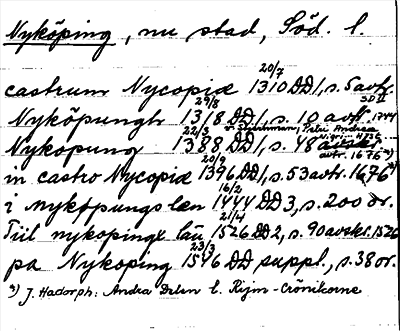 Nyköping, nu stad, Söd. l.
castrum Nycopiæ 20/7 1310 DD 1, s. 5 avtr.
Nyköpungh 29/8 1318 DD 1, s. 10 avtr. 1744 SD II
Nykopung 22/3 1388 DD 1, s. 48 avskr.
in castro Nycopiæ 20/9 1396 DD 1, s. 53 avtr. 1676 *)
i nyköpungs læn 16/2 1444 DD 3, s. 200 or.
Tiil nykopinge län 21/4 1526 DD 2, s. 90 avskr. 1526
pa Nykoping 23/3 1546 DD suppl., s. 38 or.
*) J. Hadorph: Andra Delen l. Rijm-Crönikorne